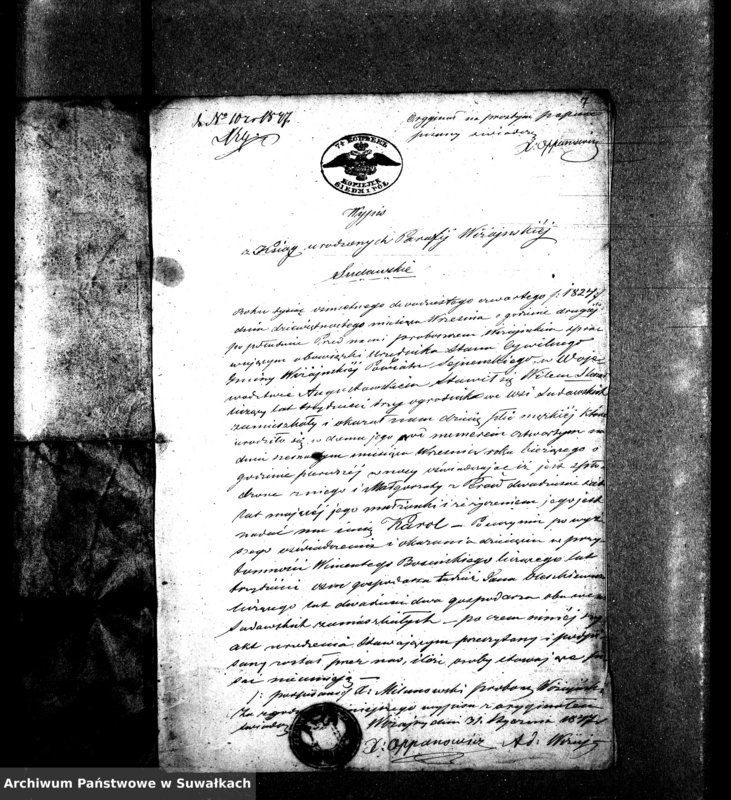 do No 10 ro 1847
7
Oryginał na prostym papierze
pisany świadczy
X: Oppanowicz
7½ КОПѢЕКЪ
KOPIEJEK
SIEDM I PÓŁ
Wypis
z Ksiąg urodzonych Parafij Wiżajnskiéj
Sudawskie
Roku tysiąc osmsetnego dwudziestego czwartego /: 1824 :/
dnia dziewiętnastego miesiąca Września o godzinie drugiéj
po południu Przed nami proboszczem Wiżajnskim spra
wującym obowiązki Urzędnika Stanu Cywilnego
Gminy Wiżajnskiéj Powiatu Sejnenskiego w Woje
wodztwie Augustowskiem Stawił się
liczący lat trzydzieści trzy ogrodnik we wsi Sudawskich
zamieszkały i okazał nam dziecię płci męzkiéj które
urodziło się w domu jego pod numerem czwartym na
dniu szesnastym miesiąca Września roku bieżącego o
godzinie pierwszéj w nocy oświadczając iż jest spło
dzone z niego i Małgorzaty z dwadzieścia
lat mającéj jego małżonki i iż życzeniem jego jest
nadać mu imię Karol — Po uczynieniu powyż
szego oświadczenia i okazania dziecięcia w przy
tomności Wincentego liczącego lat
trzydzieści osm gospodarza tudzież Jana
liczącego lat dwadzieścia dwa gospodarza obu we wsi
Sudawskich zamieszkałych — po czem niniéj szy
akt urodzenia Stawającym przeczytany i podpi
sany został przez nas, iż osoby stawające pi
sać nieumieją —
/: podpisano :/ X: Milanowski proboszcz Wiżajnski
Za zgodność niniejszego wypisu z oryginałem
świadczy Wiżajny dnia 31 Stycznia 1847 r
X: Oppanowicz Ad: Wiżajn
Archiwum Państwowe w Suwałkach